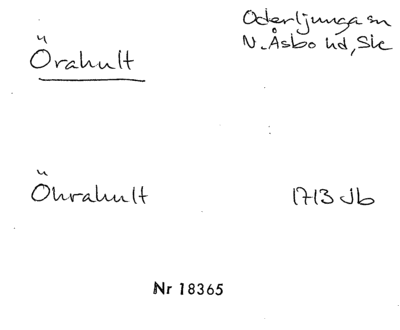 Örahult
Oderljunga sn
N. Åsbo hd, Sk
Öhrahult
1713 Jb
Nr 18365